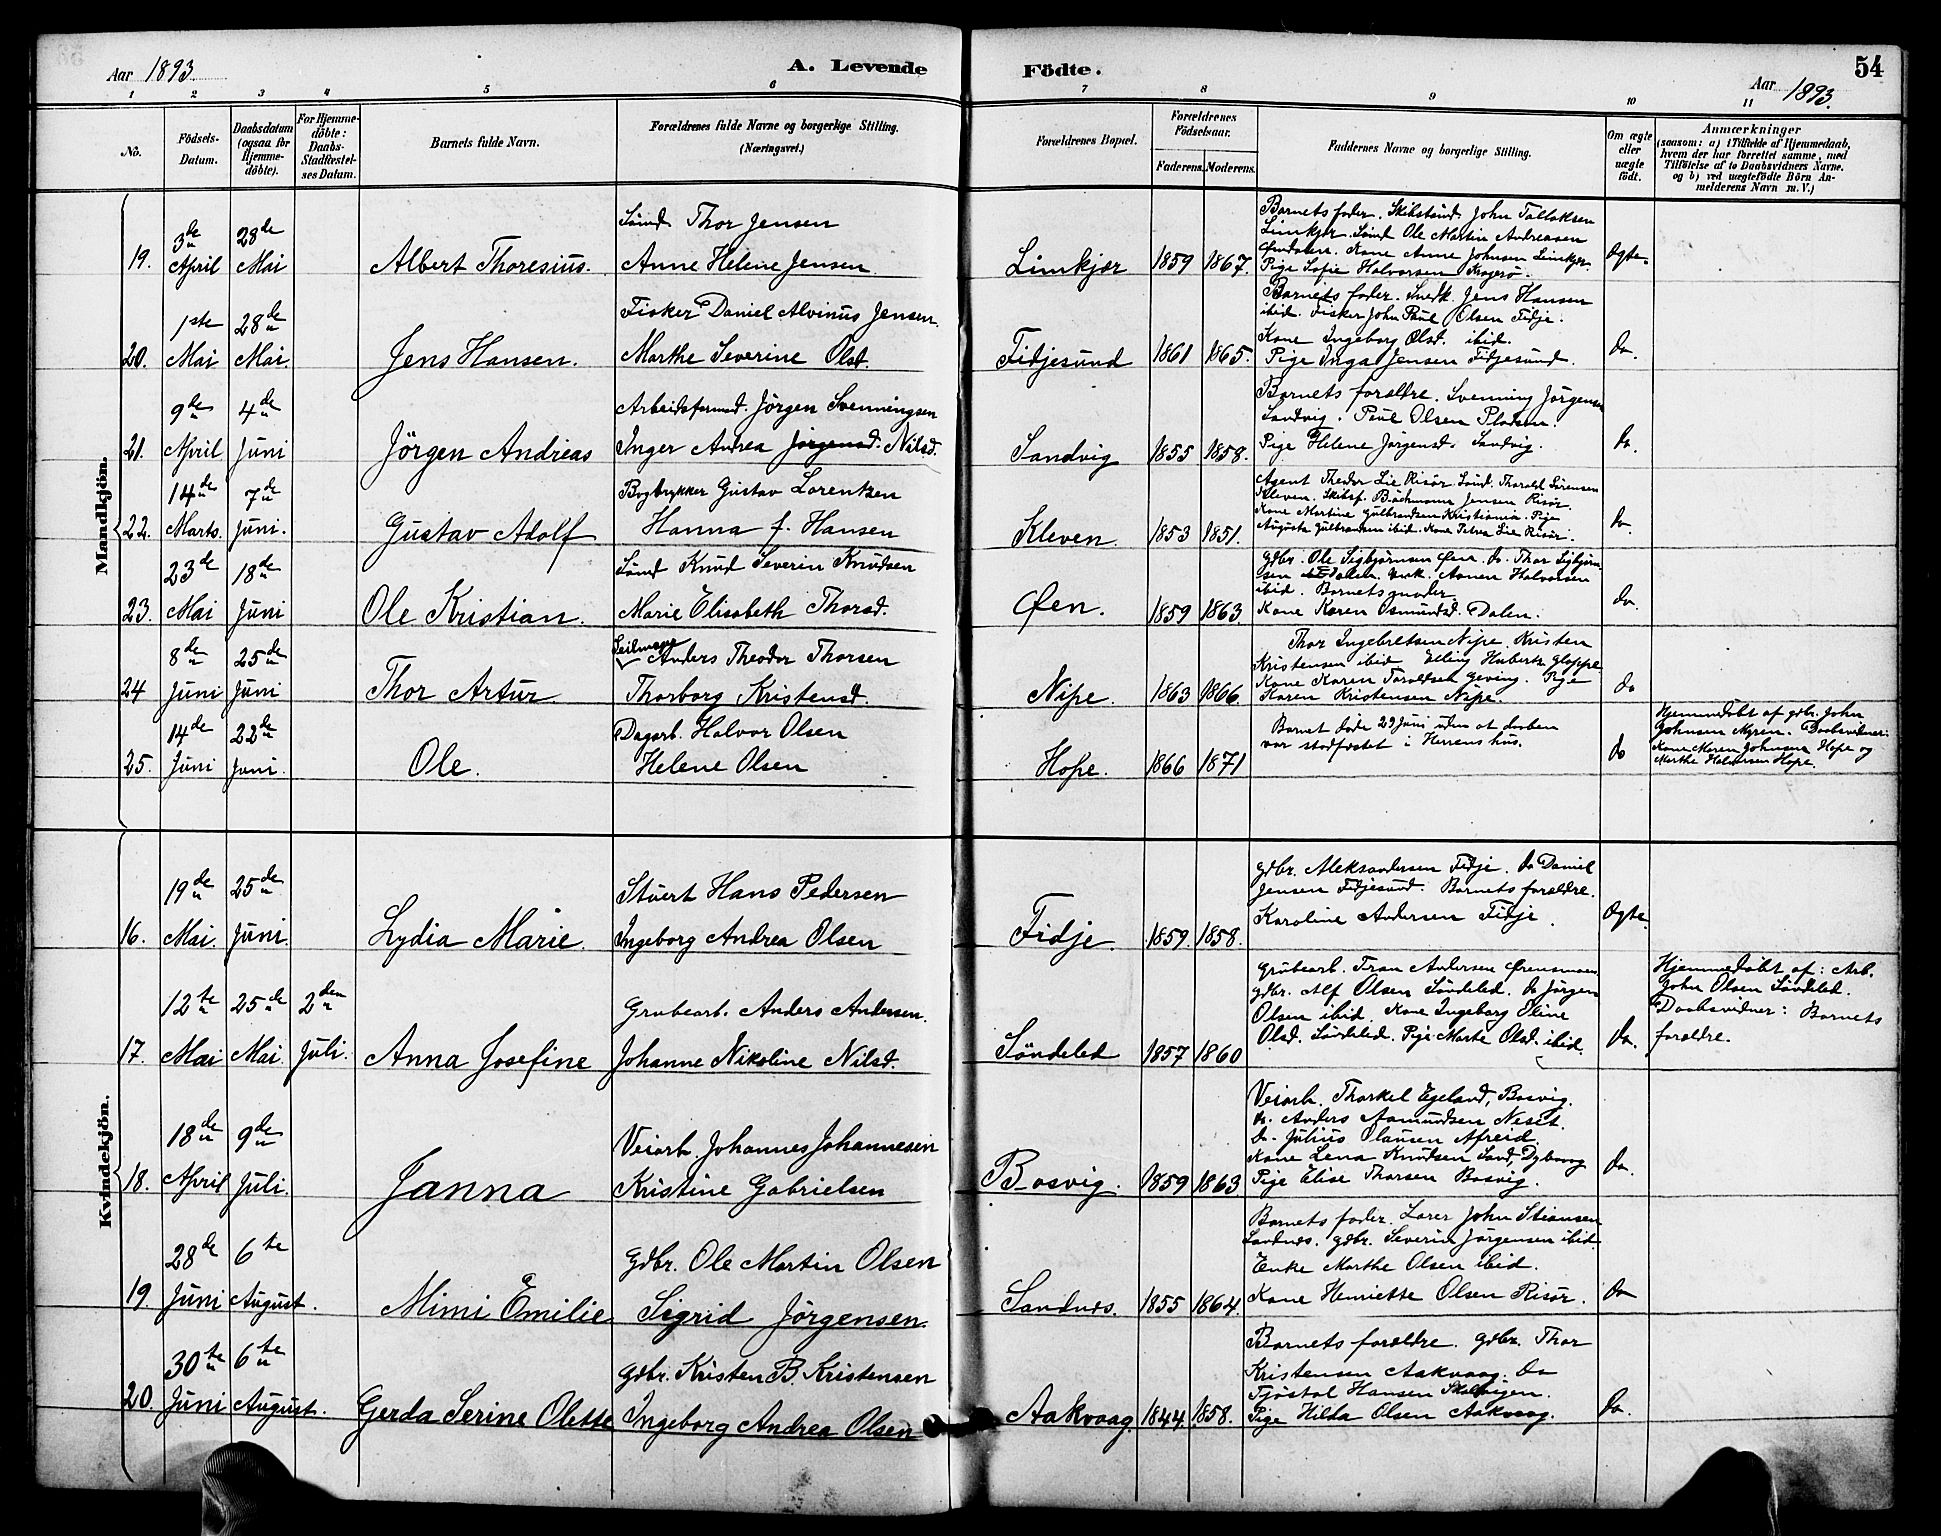 Aar 1893.
A. Levende
Födte.
54
Aar 1893.
1 2 3 4 5 6 7 8 9 10 11
No.
Födsels-Datum.
Daabsdatum (ogsaa for Hjemme-döbte).
For Hjemme-döbte: Daabs-Stadfæstel-ses Datum.
Barnets fulde Navn.
Forældrenes fulde Navne og borgerlige Stilling. (Næringsvei.)
Forældrenes Bopæl.
Forældrenes Födselsaar.
Faderens. Moderens.
Faddernes Navne og borgerlige Stilling.
Om ægte eller uægte födt.
Anmærkninger
(saasom: a) i Tilfælde af Hjemmedaab,
hvem der har forrettet samme, med
Tilföielse af to Daabsvidners Navne.
og b) ved uægtefödte Börn An-
melderens Navn m. V.)
Mandkjön.
19. 3de April 28de Mai
Albert Thoresius.
Sömd Thor Jensen
Anne Helene Jensen
Limkjær 1859 1867.
Barnets fader. Skibstömd. John Tallaksen
Limkjær. Sömd Ole Martin Andreasen
Kone Anne Johnsen Limkjær.
Pige Sofie Halvorsen Kragerø.
Ægte.
20. 1ste Mai 28de Mai.
Jens Hansen.
Fisker Daniel Alvinus Jensen.
Marthe Severine Olsd.
Fidjesund 1861 1865.
Barnets fader. Snedk. Jens Hansen
ibid. Fisker John Paul Olsen Fidje.
Kone Ingeborg Olsd. ibid.
Pige Inga Jensen Fidjesund.
do.
21. 9de April 4de Juni
Jörgen Andreas
Arbeidsformd. Jörgen Svenningsen
Inger Andrea Jørgensd. Nilsd.
Sandvig 1855 1858.
Barnets forældre. Svenning Jörgensen
Sandvig. Paul Olsen
Pige Helene Jørgensd. Sandvig.
do.
22. 14de Marts. 7de Juni.
Gustav Adolf
Bogtrykker Gustav Lorentzen
Hanna f. Hansen
Kleven. 1853 1851.
Agent Theodor Lie Risør. Sömd. Thorald Sørensen
Kleven. Skibsf. Bachmann Jensen Risør.
Kone Martine Gulbrandsen Kristiania. Pige
Augusta Gulbrandsen ibid. Kone Petra Lie Risør.
do.
23. 23de Mai 18de Juni
Ole Kristian.
Sömd Knud Severin Knudsen
Marie Elisabeth Thorsd.
Øen. 1859 1863.
Gdbr. Ole Sigbjörnsen Øen do. Thor Sigbjörn-
sen Dalen. Halvorsen
ibid. Barnets moder
Kone Karen Osmundsd. Dalen.
do.
24 8de Juni 25de Juni
Thor Artur.
Seilmager Anders Theodor Thorsen
Thorborg Kristensd.
Nipe. 1863 1866.
Thor Ingebretsen Nipe. Kristen
Kristensen ibid Elling Huberts Gloppe
Kone Karen Geving. Pige
Karen Kristensen Nipe.
do
25. 14de Juni 22de Juni.
Ole.
Dagarb. Halvor Olsen
Helene Olsen
Hope. 1866 1871
Barnet døde 29 Juni uden at daaben
var stadfæstet i Herrens hus.
do
Hjemmedøbt af gdbr. John
Johnsen Myren. Daabsvidner:
Kone Maren Johnsen Hope og
Marthe Halvorsen Hope.
Kvindekjön.
16. 19de Mai. 25de Juni.
Lydia Marie.
Stuert Hans Pedersen
Ingeborg Andrea Olsen
Fidje. 1859. 1858.
Gdbr. Aleksandersen Fidje. do Daniel
Jensen Fidjesund. Barnets forældre.
Karoline Andersen Fidje.
Ægte.
17. 12te Mai 25de Mai 2den Juli.
Anna Josefine
Grubearb. Anders Andersen.
Johanne Nikoline Nilsd.
Söndeled 1857 1860
Grubearb. Andersen
Gdbr. Alf Olsen Söndeled. do Jörgen
Olsen ibid. Kone Ingeborg Oline
Olsd. Söndeled. Pige Marte Olsd. ibid.
do.
Hjemmedøbt af: Arb.
John Olsen Söndeled.
Daabsvidner: Barnets
forældre.
18. 18de April 9de Juli.
Janna
Veiarb. Johannes Johannesen
Kristine Gabrielsen
Bosvig. 1859 1863
Veiarb. Thorkel Egeland, Bosvig.
do. Anders Aamundsen
do. Julius Olausen
Kone Lena Knudsen Sand, Dybvaag
Pige Elise Thorsen Bosvig.
do.
19. 28de Juni 6te August.
Mimi Emilie
Gdbr. Ole Martin Olsen
Sigrid Jørgensen.
Sandnes. 1855 1864.
Barnets fader. Lærer John Stiansen
Sandnes. gdbr. Severin Jørgensen ibid.
Enke Marthe Olsen ibid.
Kone Henriette Olsen Risør.
do
20. 30te Juni 6te August.
Gerda Serine Olette
Gdbr. Kristen B. Kristensen
Ingeborg Andrea Olsen
Aakvaag. 1844. 1858.
Barnets forældre. Gdbr. Thor
Kristensen Aakvaag. do
Tjøstal Hansen
Pige Hilda Olsen Aakvaag.
do.